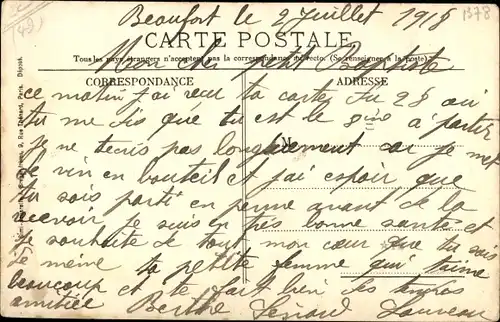 Beaufort le 2 Juillet 1918
1378
CARTE POSTALE
Tous les pays étrangers n'acceptent pas la correspondance au recto. (Se renseigner à la poste).
Mon petit Baptiste
CORRESPONDANCE
ADRESSE
ce matin j'ai reçu ta carte du 28 où
tu me dis que tu est le 8me à partir
je ne técris pas longuement car je met
le vin en bouteil et j'ai espoir que
tu sois parti en perme avant de la
recevoir je suis en très bonne santé et
je souhaite de tout mon cœur que tu sois
de même ta petite femme qui t'aime
beaucoup et te fait bien les
amitiée Berthe